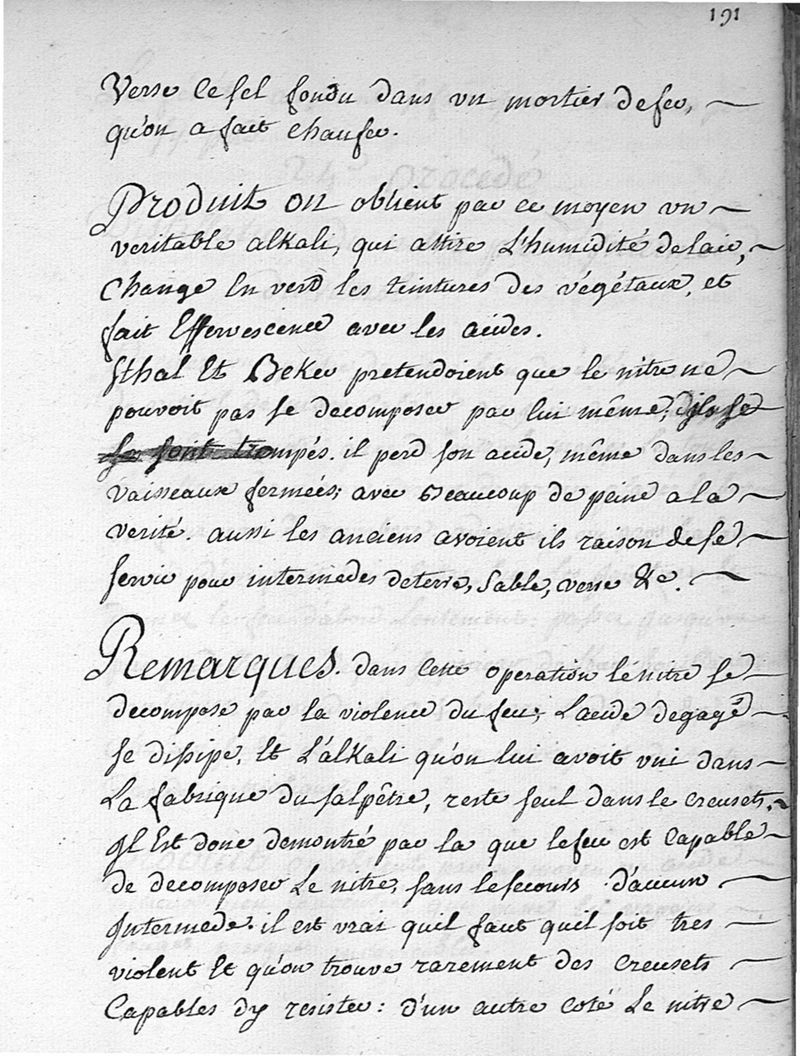 191
Verse ce sel fondu dans un mortier de fer,
qu'on a fait chaufer.
Produit on obtient par ce moyen un
veritable alkali, qui attire L'humidité delair,
change En verd les teintures des végétaux, et
fait Effervescence avec les acides.
Sthal Et Beker pretendoient que le nitre ne
pouvoit pas se decomposer par lui même, ils se
se sont trompés. il perd son acide, même dans les
vaisseaux fermées; avec beaucoup de peine a la
verité. aussi les anciens avoient ils raison de se
servir pour intermedes deterre, Sable, verre &c.
Remarques. dans cette operation le nitre se
decompose par la violence du feu; L'acide degagé
se dissipe, Et L'alkali qu'on lui avoit uni dans
La fabrique du salpêtre, reste seul dans le creusets.
Il Est donc demontré par la que le feu est Capable
de decomposer Le nitre, sans le secours d'aucun
Intermede. il est vrai quil faut quil soit tres
violent Et qu'on trouve rarement des creusets
Capables dy resister: d'un autre coté Le nitre